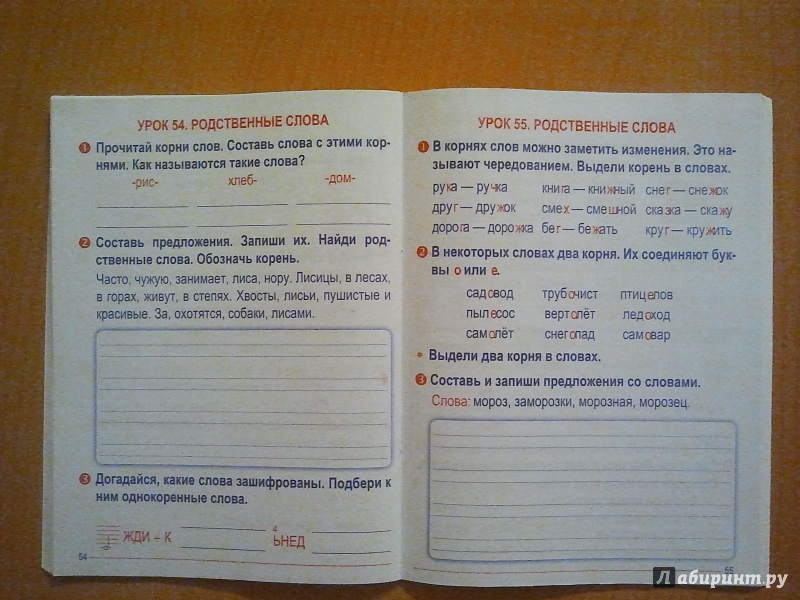 УРОК 54. РОДСТВЕННЫЕ СЛОВА
1 Прочитай корни слов. Составь слова с этими кор-
нями. Как называются такие слова?
-рис- хлеб- -дом-
2 Составь предложения. Запиши их. Найди род-
ственные слова. Обозначь корень.
Часто, чужую, занимает, лиса, нору. Лисицы, в лесах,
в горах, живут, в степях. Хвосты, лисьи, пушистые и
красивые. За, охотятся, собаки, лисами.
3 Догадайся, какие слова зашифрованы. Подбери к
ним однокоренные слова.
ЖДИ + К
4
ЬНЕД
54
УРОК 55. РОДСТВЕННЫЕ СЛОВА
1 В корнях слов можно заметить изменения. Это на-
зывают чередованием. Выдели корень в словах.
рука — ручка книга — книжный снег — снежок
друг — дружок смех — смешной сказка — скажу
дорога — дорожка бег — бежать круг — кружить
2 В некоторых словах два корня. Их соединяют бук-
вы о или е.
садовод трубочист птицелов
пылесос вертолёт ледоход
самолёт снегопад самовар
* Выдели два корня в словах.
3 Составь и запиши предложения со словами.
Слова: мороз, заморозки, морозная, морозец.
55
Лабиринт.ру